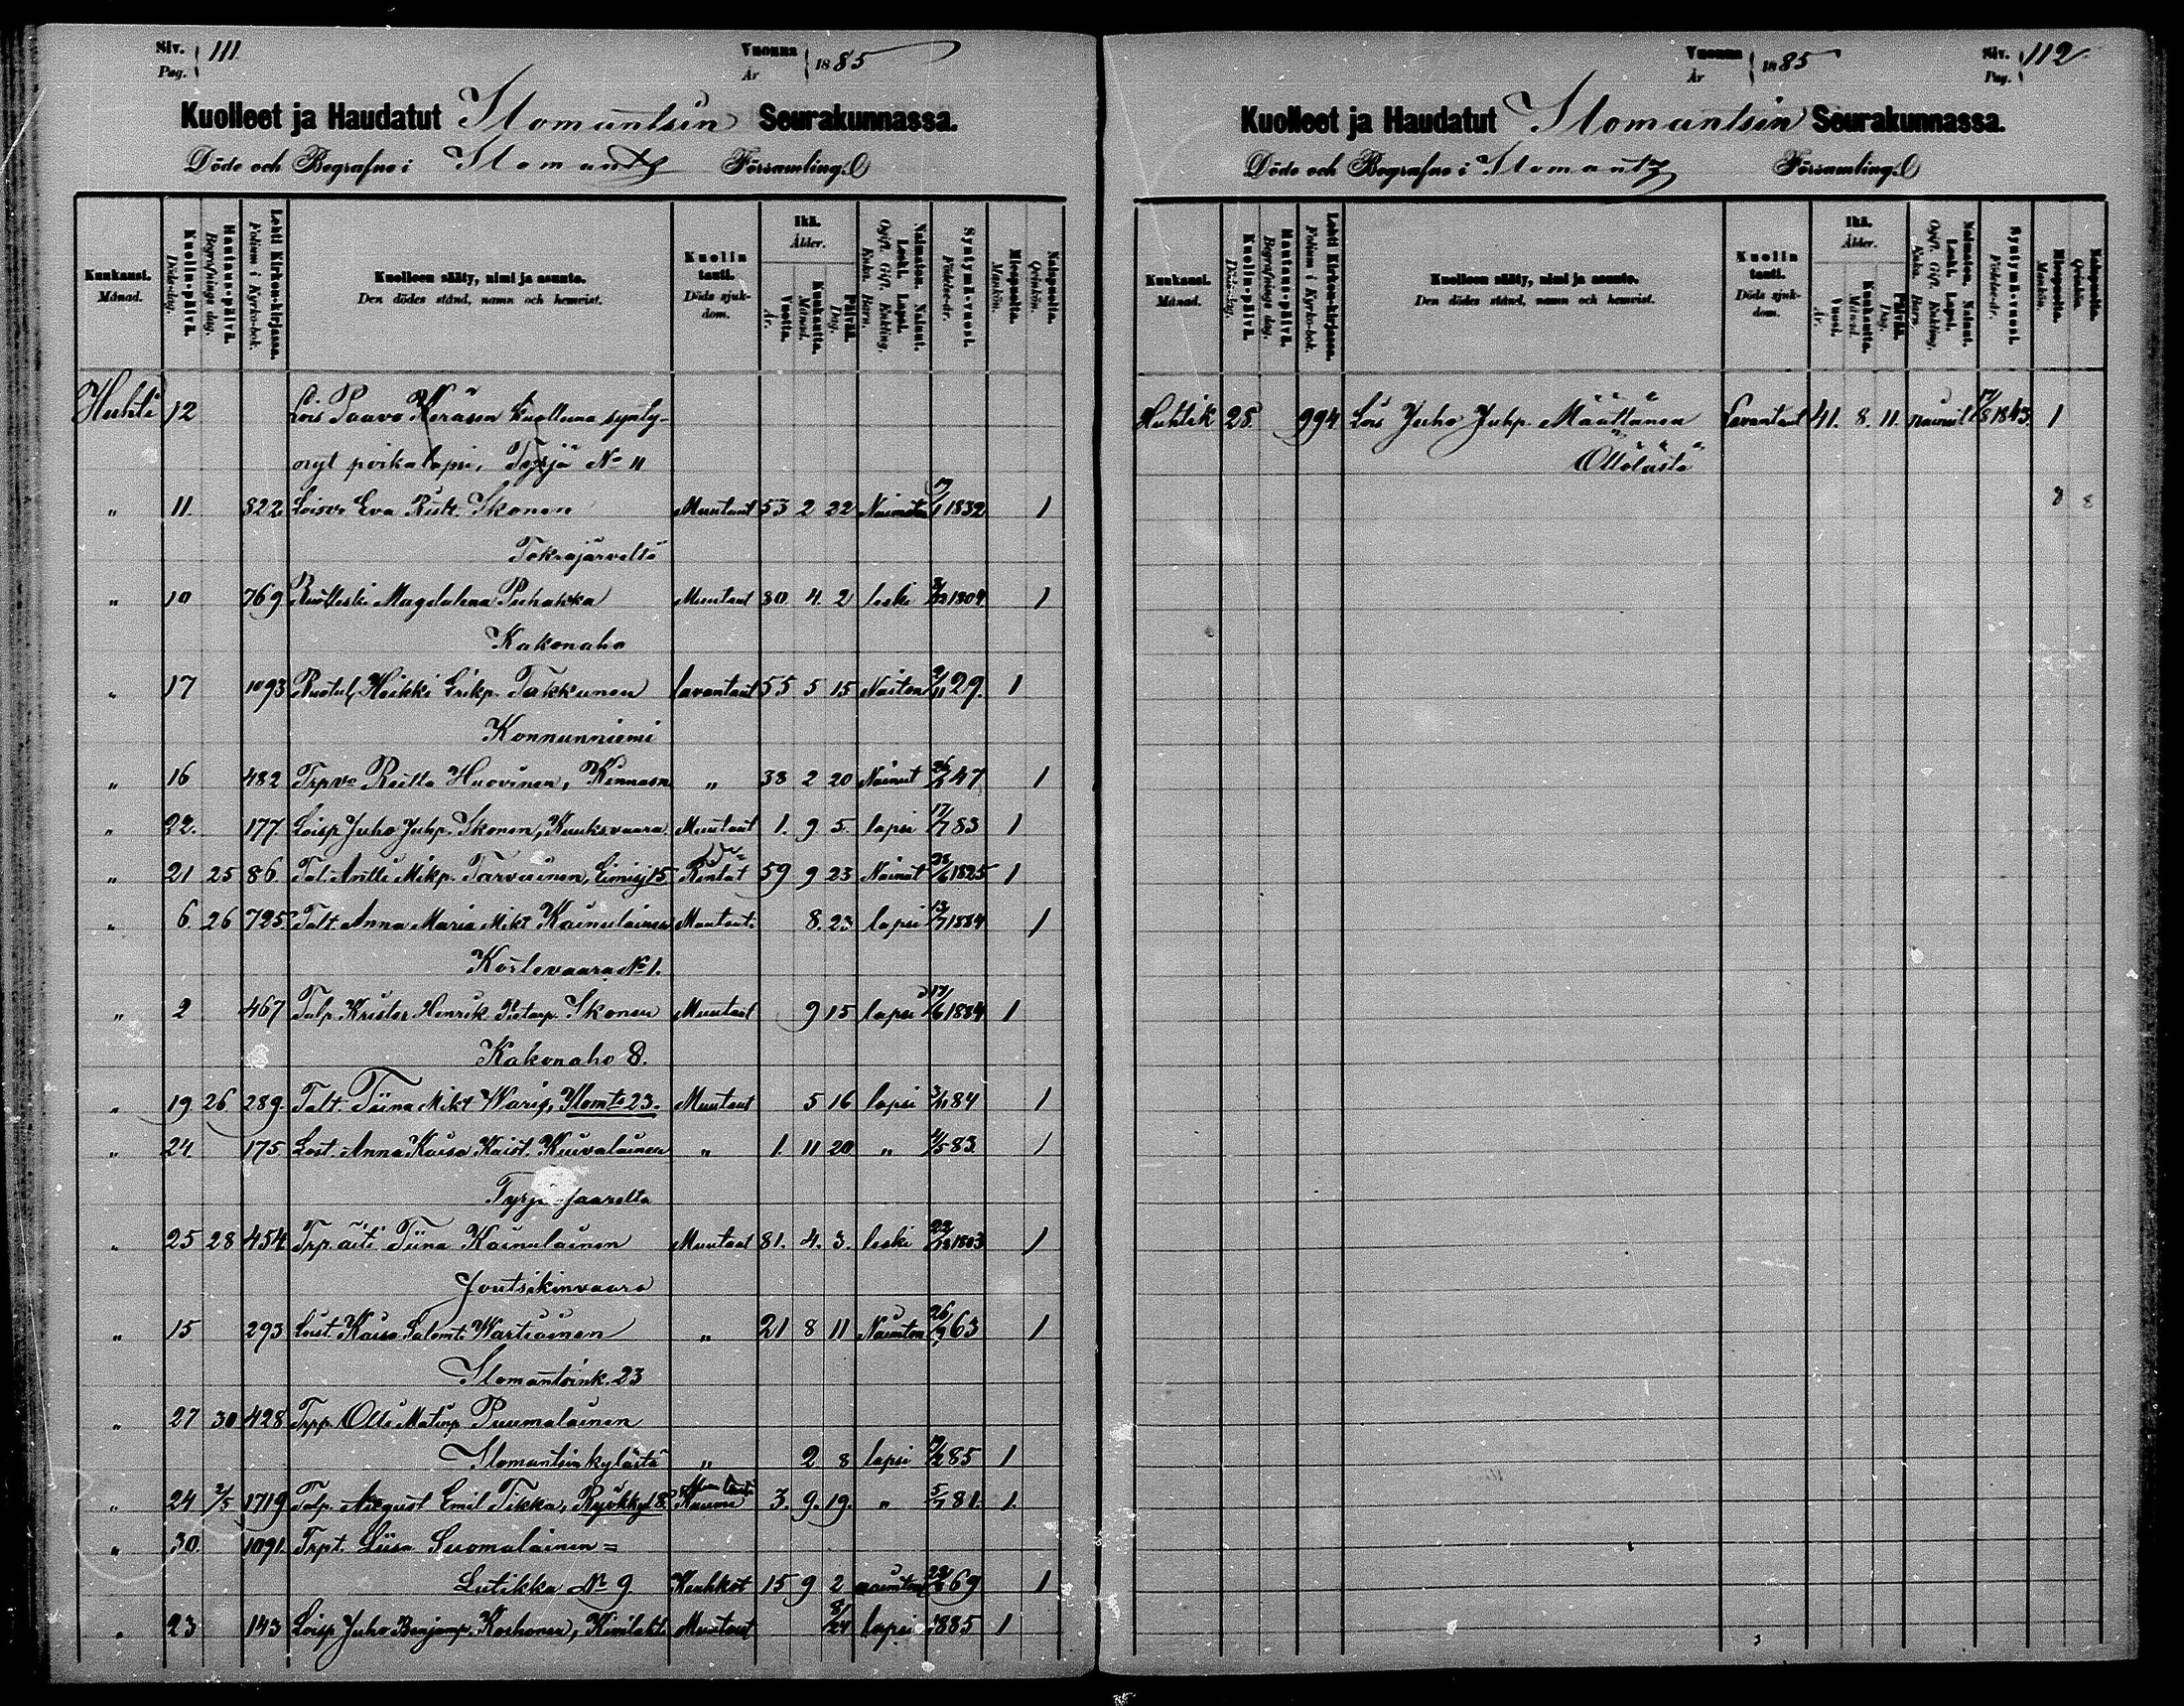 Siv. 111
Pag.
Vuonna 1885
År
Kuolleet ja Haudatut Ilomantsin Seurakunnassa.
Döde och Begrafne i Ilomants Församling.
Kuukausi. Månad.
Kuolin-päivä. Döds-dag.
Hautaus-päivä. Begrafnings dag.
Lehti Kirkon-kirjassa. Folium i Kyrko-bok.
Kuolleen sääty, nimi ja asunto.
Den dödes stånd, namn och hemvist.
Kuolin tauti. Döds sjuk-dom.
Ikä. Ålder.
Vuotta. År.
Kuukautta. Månad.
Päivää. Dag.
Naimaton. Nainut. Leski. Lapsi.
Ogift. Gift. Enkling. Enka. Barn.
Syntymä-vuosi. Födelse-år.
Miespuolta. Mankön.
Naispuolta. Qvinkön.
Huhti 12 Lois Paavo Keräsen kuolluna synty-
nyt poikalapsi, Tyrjä No 11
" 11 822 Loisv. Eva Ristt. Ikonen Muutaut 53 2 22 1832 1
Tokrajärveltä
" 10 769 Magdalena Puhakka Muutaut 80 4. 2 leski 1804 1
Kakonaho
" 17 1093 Ruotul, Heikki Erikp. Takkunen lavantaut 55 5 15 Naiton 2/11 29. 1
Konnunniemi
" 16 482 Trpv. Riitta Huovinen, Kinnasn " 38 2 20 Nainut 47 1
" 22. 177 Loisp Juho Juhp. Ikonen, Kuuksvaara. Muutaut 1. 9 5. lapsi 17/7 83 1
" 21 25 86. Tal. Antti Mikp. Tarvainen, Eimisj 15. 59 9 23 Nainut 28/6 1825 1
" 6. 26 725. Talt. Anna Maria Mikt Kainulainen Muutaut: 8. 23 lapsi 13/7 1884 1
Koslevaara No 1.
" 2 467 Talp. Krister Henrik Pietarp. Ikonen Muutaut 9 15 lapsi 17/6 1884 1
Kakonaho 8.
" 19 26 289. Talt. Tiina Mikt Waris, Ilomts 23. Muutaut 5 16 lapsi 3/11 84 1
" 24. 175. Lost. Anna Kaisa Kuivalainen " 1. 11 20 " 4/5 83. 1
Tyrjänsaarelta
" 25 28 454. Trp. äiti Tiina Kainulainen Muutaut 81. 4. 3. leski 22/12 1803 1
Joutsikinvaara
" 15 293 Loist. Kaisa Salomt. Wartiainen " 21 8 11 Naimton 63 1
Ilomantsink. 23
" 27 30 428 Trpp. Olli Matinp Puumalainen
Ilomantsinkylästä " 2 8 lapsi 19/2 85 1
" 24 2/5 1719 Talp. August Emil Tikka, 8. Kuume 3. 9. 19. " 5/7 81. 1.
" 30. 1091. Trpt. Liisa Suomalainen =
Lutikka No 9 Keuhkot 15 9 2 naimton 69 1
" 23 143 Loisp Juho Benjamp. Korhonen, Muutaut 8/24 lapsi 1885 1
Vuonna 1885
År
Siv. 112
Pag.
Kuolleet ja Haudatut Ilomantsin Seurakunnassa.
Döde och Begrafne i Ilomants Församling.
Kuukausi. Månad.
Kuolin-päivä. Döds-dag.
Hautaus-päivä. Begrafnings dag.
Lehti Kirkon-kirjassa. Folium i Kyrko-bok.
Kuolleen sääty, nimi ja asunto.
Den dödes stånd, namn och hemvist.
Kuolin tauti. Döds sjuk-dom.
Ikä. Ålder.
Vuosi. År.
Kuukautta. Månad.
Päivää. Dag.
Naimaton. Nainut. Leski. Lapsi.
Ogift. Gift. Enkling. Enka. Barn.
Syntymä-vuosi. Födelse-år.
Miespuolta. Mankön.
Naispuolta. Qvinkön.
Huhtik 28. 994 Lois Juho Juhp. Määttänen Lavantaut 41. 8. 11. nainut 17/8 1843. 1
Ottolasta
8 8